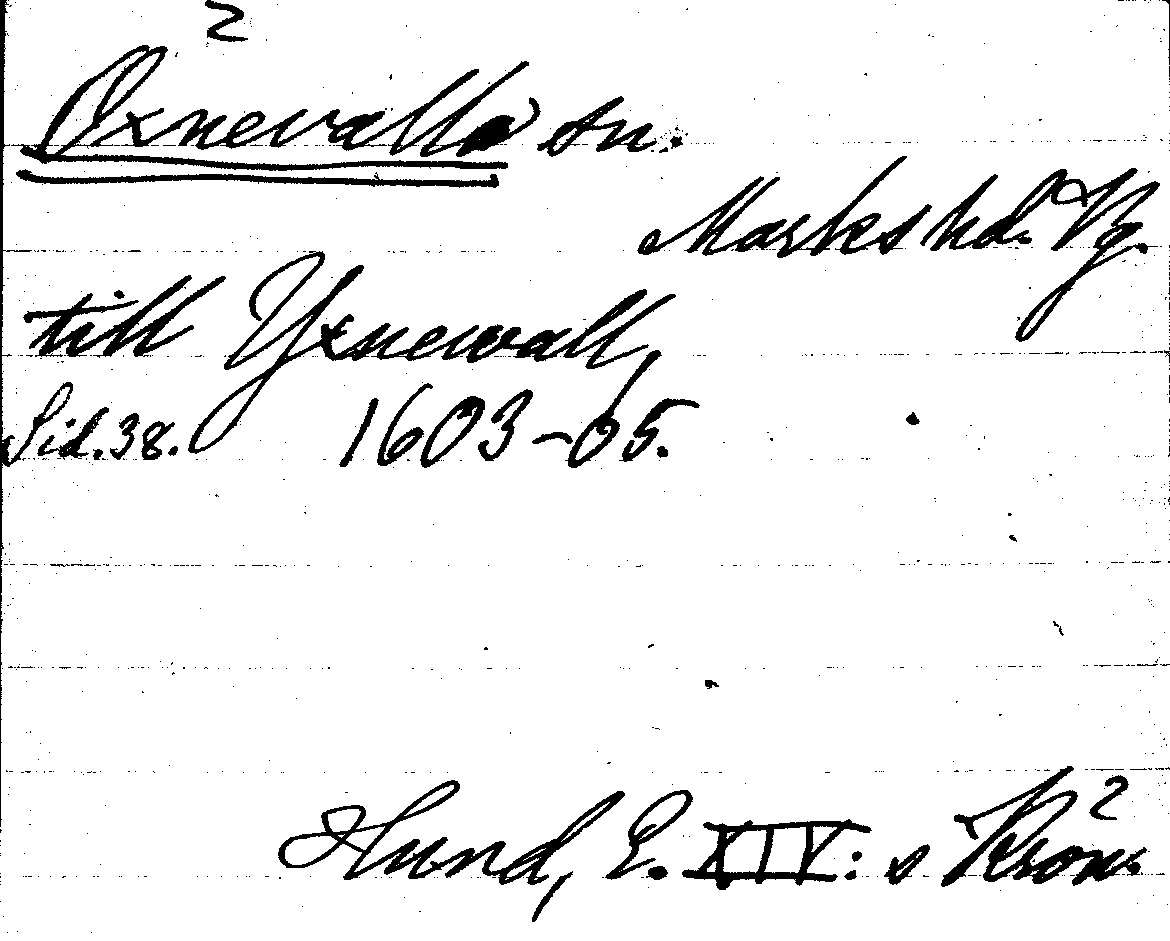 2
Öxnevalla sn.
Marks hd. Vg.
till Yxnewall,
Sid. 38. 1603-05.
Hund, E. XIV: s Krön.
2